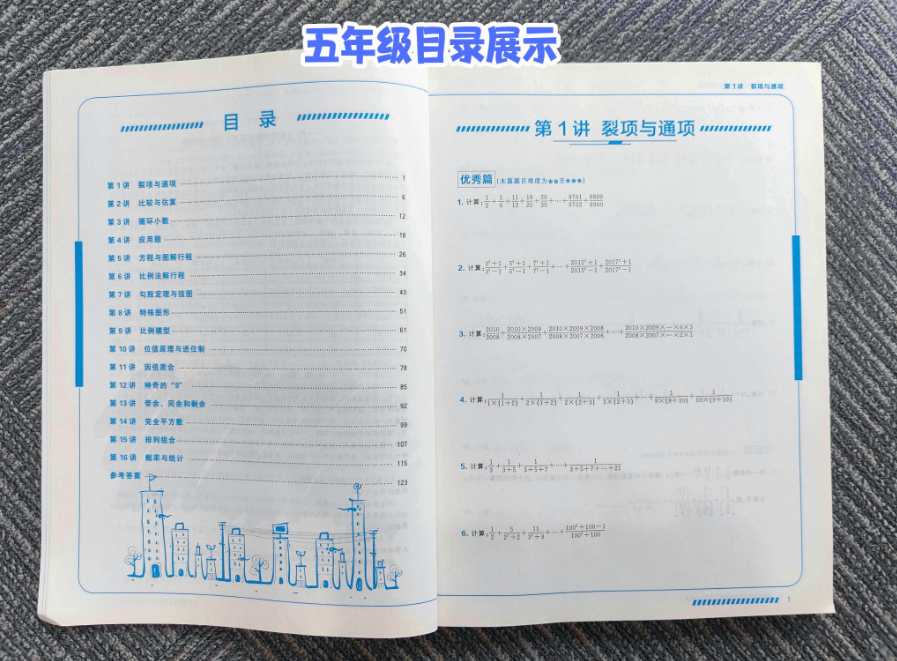 五年级目录展示
目 录
第 1 讲 裂项与通项 1
第 2 讲 比较与估算 6
第 3 讲 循环小数 12
第 4 讲 应用题 18
第 5 讲 方程与图解行程 26
第 6 讲 比例法解行程 34
第 7 讲 勾股定理与弦图 43
第 8 讲 特殊图形 51
第 9 讲 比例模型 61
第 10 讲 位值原理与进位制 70
第 11 讲 因倍质合 78
第 12 讲 神奇的“9” 85
第 13 讲 带余、同余和剩余 92
第 14 讲 完全平方数 99
第 15 讲 排列组合 107
第 16 讲 概率与统计 115
参考答案 123
第 1 讲 裂项与通项
第 1 讲 裂项与通项
优秀篇 (本篇题目难度为★★至★★★)
1. 计算:1/2+5/6+11/12+19/20+29/30+⋯+9701/9702+9899/9900
2. 计算:(3²+1)/(3²−1)+(5²+1)/(5²−1)+(7²+1)/(7²−1)+⋯+(2015²+1)/(2015²−1)+(2017²+1)/(2017²−1)
3. 计算:2010/2008+(2010×2009)/(2008×2007)+(2010×2009×2008)/(2008×2007×2006)+⋯+(2010×2009×⋯×4×3)/(2008×2007×⋯×2×1)
4. 计算:
5. 计算:1/3+1/(3+5)+1/(3+5+7)+⋯+1/(3+5+7+⋯+21)
6. 计算:1/2+5/(2²+2)+11/(3²+3)+⋯+(100²+100−1)/(100²+100)
1